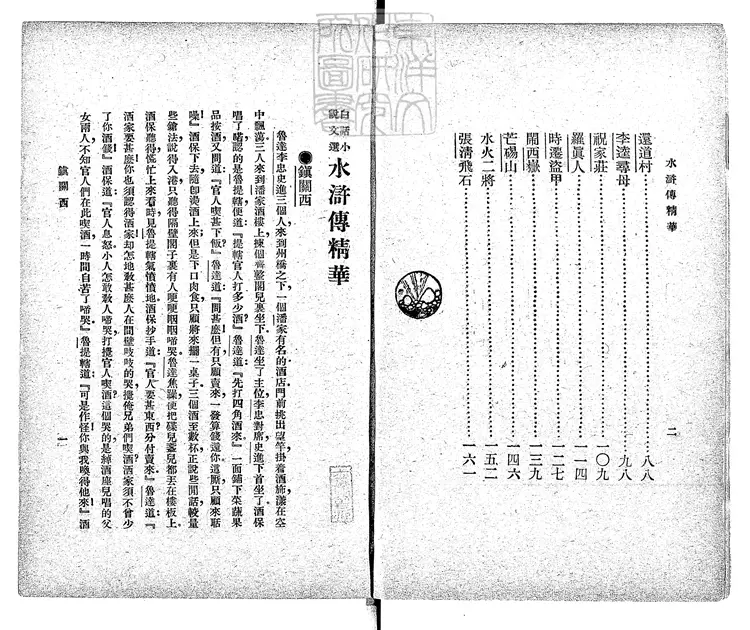 水滸傳精華
還道村 八八
李逵尋母 九八
祝家莊 一〇九
羅眞人 一一四
時遷盜甲 一二七
鬧西嶽 一三九
芒碭山 一四六
水火二將 一五二
張淸飛石 一六一
二
白話小說文選 水滸傳精華
●鎭關西
魯達李忠史進三個人來到州橋之下一個潘家有名的酒店門前挑出望竿掛着酒旆漾在空
中飄蕩三人來到潘家酒樓上揀個齊整閣兒裏坐下魯達坐了主位李忠對席史進下首坐了酒保
唱了喏認的是魯提轄便道『提轄官人打多少酒』魯達道『先打四角酒來』一面鋪下菜蔬果
品按酒又問道『官人喫甚下飯』魯達道『問甚麼但有只顧賣來一發算錢還你這廝只顧來聒
噪』酒保下去隨卽燙酒上來但是下口肉食只顧將來擺一桌子三個酒至數杯正說些閒話較量
些鎗法說得入港只聽得隔壁閣子裏有人哽哽咽咽啼哭魯達焦躁便把碟兒盞兒都丟在樓板上
酒保聽得慌忙上來看時見魯提轄氣憤憤地酒保抄手道『官人要甚東西分付賣來』魯達道『
酒家要甚麼你也須認得洒家却怎地敎甚麼人在間壁吱吱的哭攪俺兄弟們喫酒洒家須不曾少
了你酒錢』酒保道『官人息怒小人怎敢敎人啼哭打攪官人喫酒這個哭的是綽酒座兒唱的父
女兩人不知官人們在此喫酒一時間自苦了啼哭』魯提轄道『可是作怪你與我喚得他來』酒
鎭關西
一